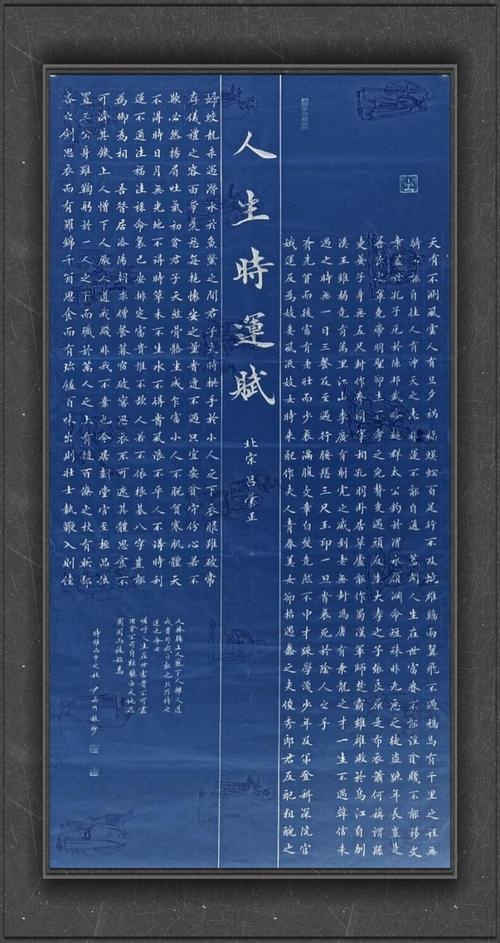 天有不測風雲人有旦夕禍福蜈蚣百足行不及蛇雄鷄兩翼飛不過鴉馬有千里之程無
騎不能自往人有沖天之志非運不能自通 蓋聞人生在世富貴不能淫貧賤不能移文
章蓋世孔子厄於陳邦武略超群太公釣於渭水顏淵命短殊非凶惡之徒盜跖年長豈是
善良之輩堯帝明聖卻生不肖之兒瞽叟愚頑反生大孝之子張良原是布衣蕭何稱謂縣
吏晏子身無五尺封作齊國宰相孔明臥居草廬能作蜀漢軍師楚霸雖雄敗於烏江自刎
漢王雖弱竟有萬里江山李廣有射虎之威到老無封馮唐有乘龍之才一生不遇韓信未
遇之時無一日三餐及至遇行腰懸三尺玉印一旦時衰死於陰人之手
有先貧而後富有老壯而少衰滿腹文章白髮竟然不中才疎學淺少年及第登科深院宮
娥運反為妓妾風流妓女時來配作夫人青春美女卻招愚蠢之夫俊秀郎君反配粗醜之
人生時運賦
北宋呂蒙正
婦蛟龍未遇潛水於魚鱉之間君子失時拱手於小人之下衣服雖破常
存儀禮之容面帶憂愁每抱懷安之量時遭不遇只宜安貧守份心若不
欺必然揚眉吐氣初貧君子天然骨骼生成乍富小人不脫貧寒肌體天
不得時日月無光地不得時草木不生水不得時風浪不平人不得時利
運不通注福注祿命裏已安排定富貴誰不欲人若不依根基八字豈能
為卿為相 吾昔居洛陽朝求僧餐暮宿破窯思衣不可遮其體思食不
可濟其饑上人憎下人厭人道我賤非我不棄也今居朝堂官至極品位
置三公身雖鞠躬於一人之下而列職於萬人之上有撻百僚之杖有斬鄙
吝之劍思衣而有羅錦千箱思食而有珍饈百味出則壯士執鞭入則佳
人捧觴上人寵下人擁人道
我貴非我之能也此乃時也
運也命也
嗟呼人生在世富貴不可盡
用貧賤不可自欺聽由天地循
環周而復始焉